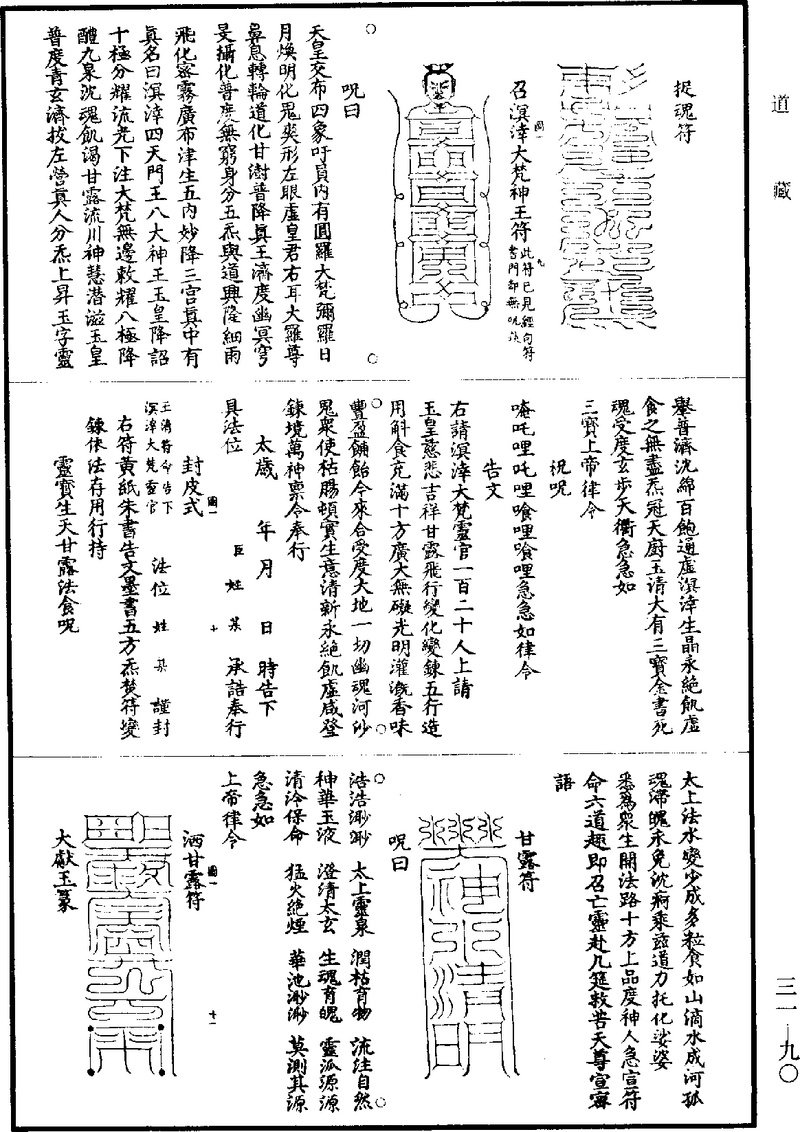 道藏
捉魂符
召溟涬大梵神王符 此符已見經向符書門却無呪訣
呪曰
天皇交布四象吁員內有圓羅大梵彌羅日
月煥明化鬼爽形左眼虛皇君右耳大羅尊
鼻息轉輪道化甘澍普降真王濟度幽冥穹
旻攝化普度無窮身分五炁與道興隆細雨
飛化密霧廣布津生五內妙降三宮真中有
真名曰溟涬四天門王八大神王玉皇降詔
十極分耀流光下注大梵無邊敕耀八極降
醴九泉沈魂飢渴甘露流川神慧潛滋玉皇
普度青玄濟拔左營真人分炁上昇玉字靈
舉普濟沈綿百飽通虛溟涬生晶永絕飢虛
食之無盡炁冠天厨玉清大有三寶金書死
魂受度玄步天衢急急如
三寶上帝律令
祝呪
唵吒哩吒哩喰哩喰哩急急如律令
告文
右請溟涬大梵靈官一百二十人上請
玉皇慈悲吉祥甘露飛行變化變鍊五行造
用斛食充滿十方廣大無礙光明灌溉香味
豐盈餔飴今來合受度大地一切幽魂河沙
鬼衆使枯腸頓實生意清新永絕飢虛咸登
鍊境萬神稟令奉行
太歲 年 月 日 時告下
具法位 臣 姓 某 承誥奉行
封皮式 圖一
玉清符命告下
溟涬大梵靈官 法位 姓 某 謹封
右符黃紙朱書告文墨書五方炁焚符變
鍊依法存用行持
靈寶生天甘露法食呪
太上法水變少成多粒食如山滴水成河孤
魂滯魄永免沈痾乘茲道力托化娑婆
悉為衆生開法路十方上品度神人急宣符
命六道趣即召亡靈赴几筵救苦天尊宣密
語
甘露符
呪曰
浩浩渺渺 太上靈泉 潤枯育物 流注自然
神華玉液 澄清太玄 生魂育魄 靈派源源
清泠保命 猛火絕煙 華池渺渺 莫測其源
急急如
上帝律令
洒甘露符 圖一
大獻玉篆
三一—九〇